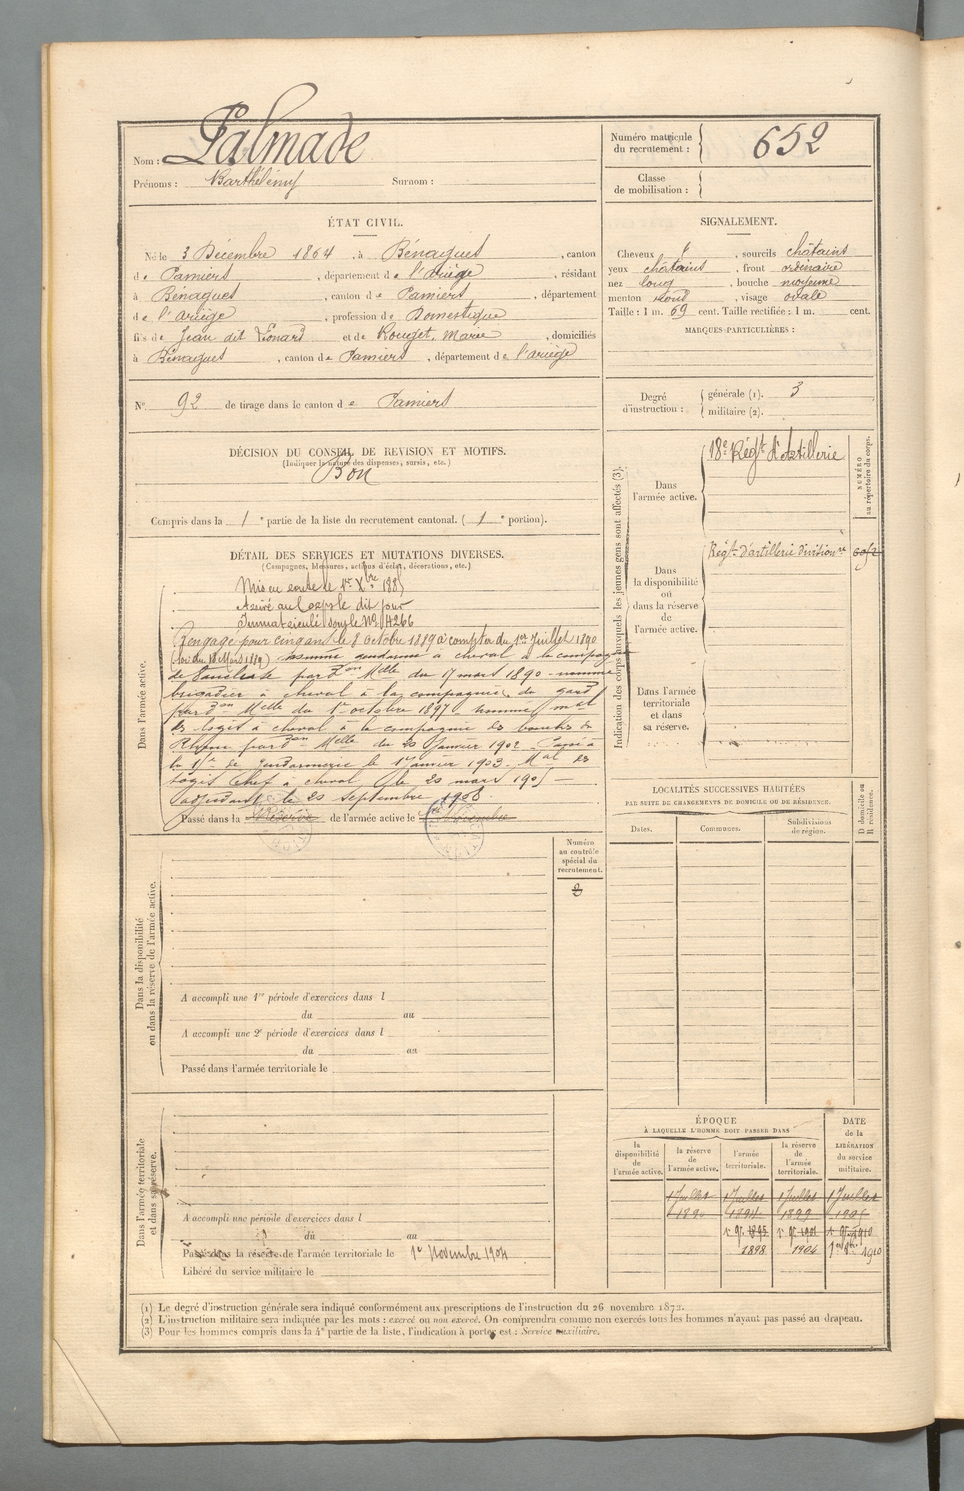 Nom : Palmade
Prénoms : Barthélémy Surnom :
Numéro matricule du recrutement : 652
Classe de mobilisation :
ÉTAT CIVIL.
Né le 3 Décembre 1864, à Bénagues, canton
de Pamiers, département de l'ariège, résidant
à Bénagues, canton de Pamiers, département
de l'ariège, profession de Domestique
fils de Jean dit Léonard et de Rouget, Marie, domiciliés
à Bénagues, canton de Pamiers, département de l'ariège
SIGNALEMENT.
Cheveux ", sourcils châtains
yeux châtains, front ordinaire
nez long, bouche moyenne
menton rond, visage ovale
Taille : 1 m. 69 cent. Taille rectifiée : 1 m. cent.
MARQUES PARTICULIÈRES :
N° 92 de tirage dans le canton de Pamiers
Degré d'instruction : générale (1). 3
militaire (2).
DÉCISION DU CONSEIL DE REVISION ET MOTIFS.
(Indiquer la nature des dispenses, sursis, etc.)
Bon
Compris dans la 1e partie de la liste du recrutement cantonal. (1e portion).
DÉTAIL DES SERVICES ET MUTATIONS DIVERSES.
(Campagnes, blessures, actions d'éclat, décorations, etc.)
Dans l'armée active.
Mis en route le 1er Xbre 1885
Arrivé au Corps le dit jour
Immatriculé sous le No 4266
Rengagé pour cinq ans le 8 octobre 1889 à compter du 1er Juillet 1890
(loi du 18 Mars 1889) gendarme à cheval à la compagnie
de par Don Melle du 17 mars 1890 - nommé
brigadier à cheval à la compagnie du gard
par Don Melle du 1er octobre 1897 - nommé mal
des logis à cheval à la compagnie des bouches du
Rhône par Don Melle du 20 Janvier 1902 - Passé à
la 15e de Gendarmerie le 1er Janvier 1903. Mal des
logis Chef à cheval le 20 mars 1905 -
adjudant le 20 Septembre 1908.
Passé dans la Réserve de l'armée active le
Indication des corps auxquels les jeunes gens sont affectés (3).
NUMÉRO au répertoire du corps.
Dans l'armée active. 18e Régt d'artillerie
Dans la disponibilité ou dans la réserve de l'armée active. Régt d'artillerie divisionre
Dans l'armée territoriale et dans sa réserve.
LOCALITÉS SUCCESSIVES HABITÉES
PAR SUITE DE CHANGEMENTS DE DOMICILE OU DE RÉSIDENCE.
Dates. Communes. Subdivisions de région. D domicile ou R résidence.
Dans la disponibilité ou dans la réserve de l'armée active.
Numéro au contrôle spécial du recrutement.
A accompli une 1re période d'exercices dans l
du au
A accompli une 2e période d'exercices dans l
du au
Passé dans l'armée territoriale le
Dans l'armée territoriale et dans sa réserve.
A accompli une période d'exercices dans l
du au
Passé dans la réserve de l'armée territoriale le 1er Novembre 1904
Libéré du service militaire le
ÉPOQUE
À LAQUELLE L'HOMME DOIT PASSER DANS
la disponibilité de l'armée active. la réserve de l'armée active. l'armée territoriale. la réserve de l'armée territoriale. DATE de la LIBÉRATION du service militaire.
1 Juillet 1 Juillet 1 Juillet 1 Juillet
1890 1894 1899 1905
1898 1904 1910
(1) Le degré d'instruction générale sera indiqué conformément aux prescriptions de l'instruction du 26 novembre 1872.
(2) L'instruction militaire sera indiquée par les mots : exercé ou non exercé. On comprendra comme non exercés tous les hommes n'ayant pas passé au drapeau.
(3) Pour les hommes compris dans la 4e partie de la liste, l'indication à porter est : Service auxiliaire.